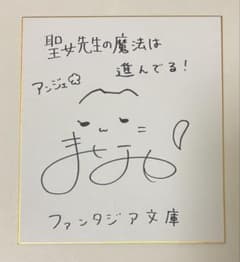 聖女先生の魔法は
進んでる！
アンジェ
ファンタジア文庫